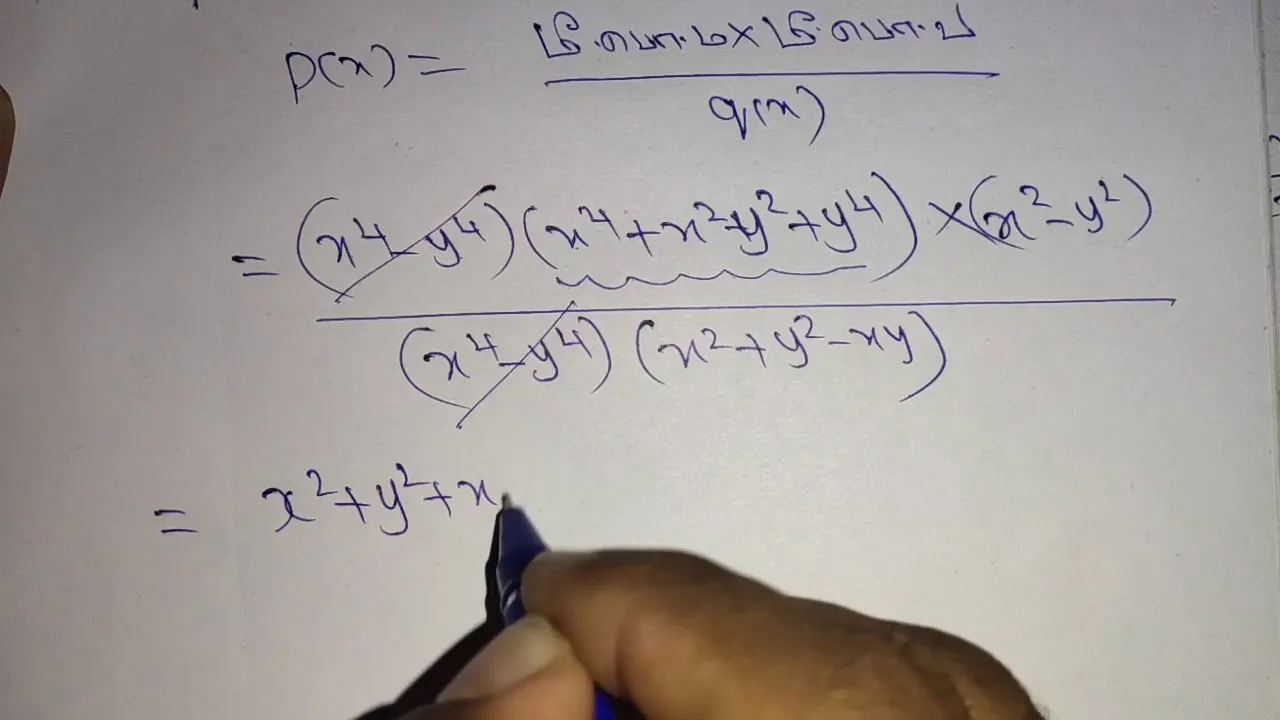 p(x) = மீ.பொ.ம × மீ.பொ.வ / q(x)
= (x⁴ - y⁴)(x⁴ + x² + y² + y⁴) × (x² - y²) / (x⁴ - y⁴)(x² + y² - xy)
= x² + y² + x